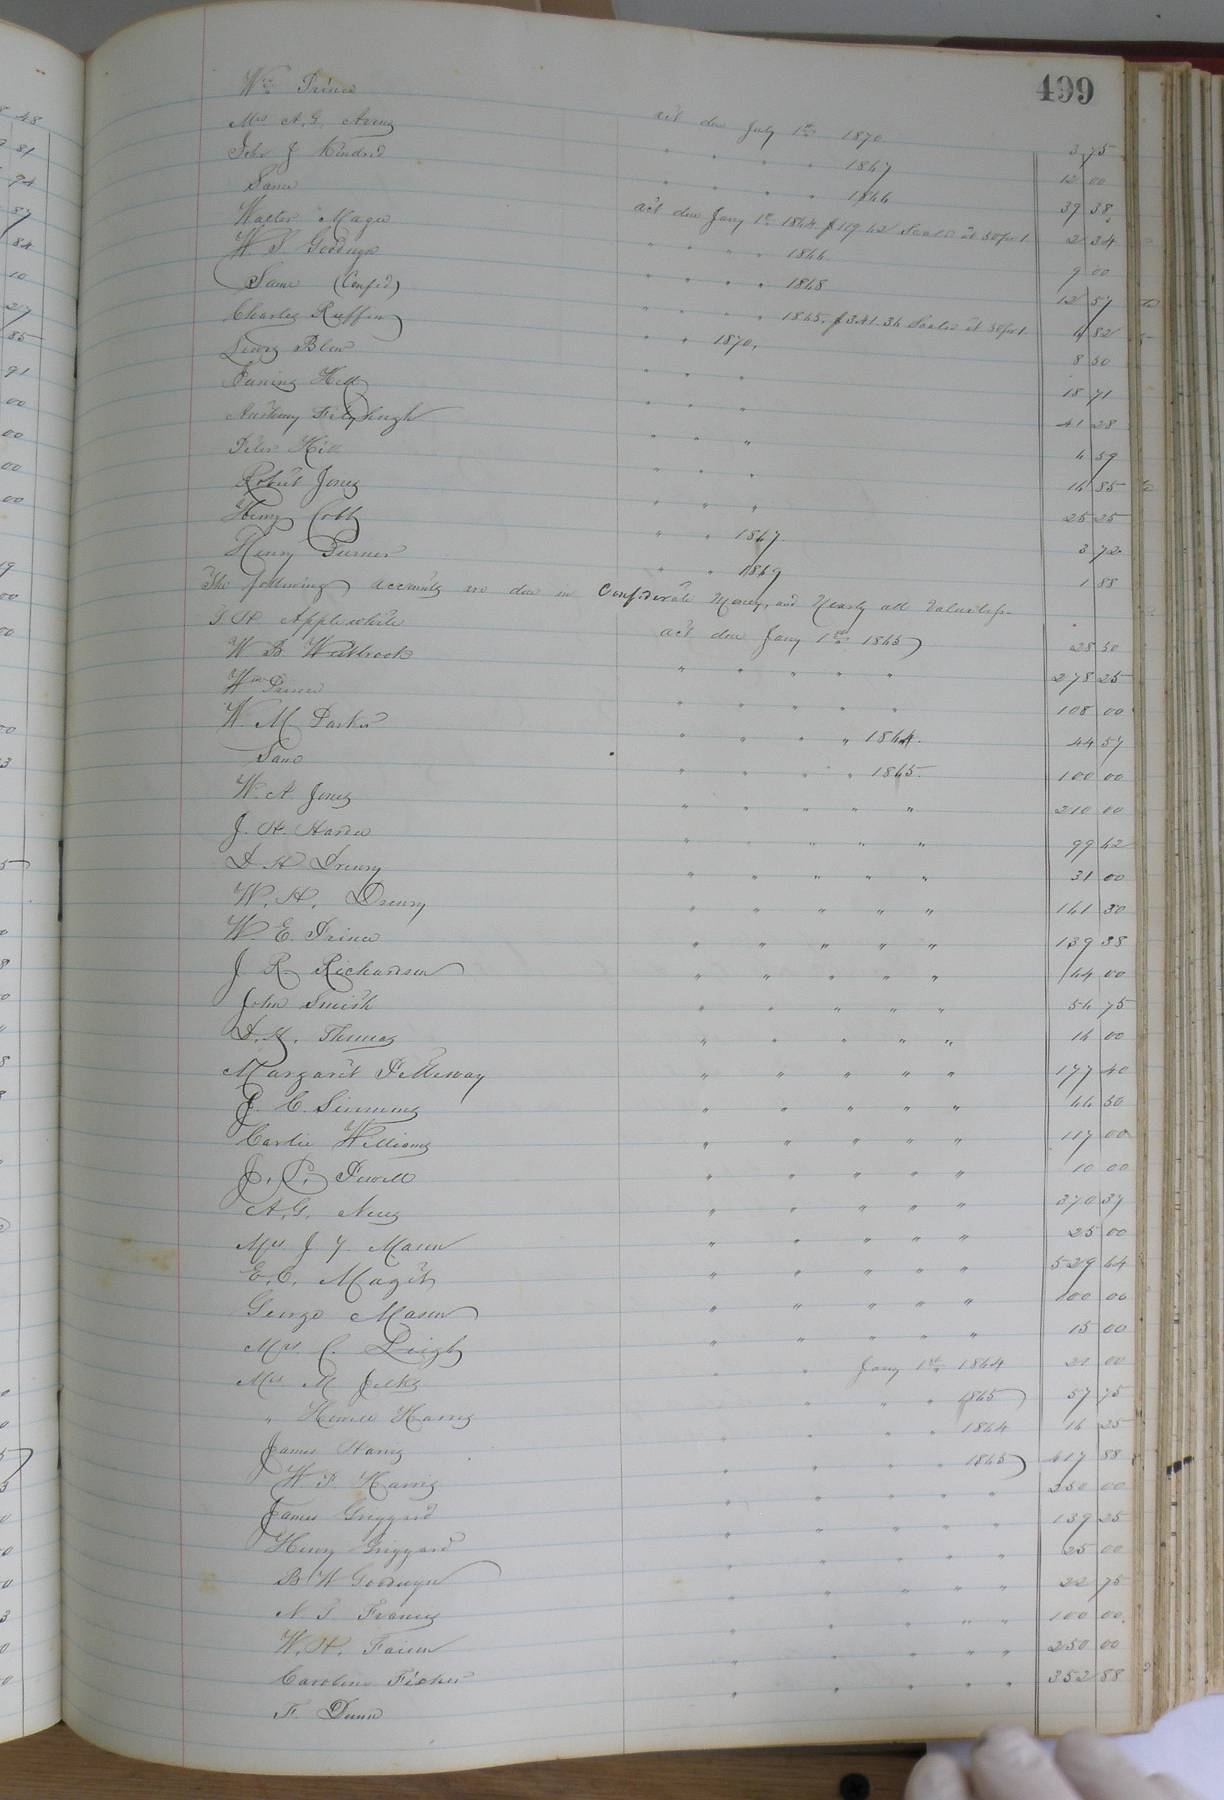 499
Wm Prince act due July 1st 1870 3 75
Mrs A. G. " " " " 1867 12 00
John J Kindred " " " " 1866 39 38
Same act due Jany 1st 1864 $119.42 Scaled at 50 for 1 2 34
Walter Magee " " " " 1866 9 00
W. S. Goodwyn " " " " 1868 12 57
Same (Confed) " " " " 1865. $341.36 Scaled at 50 for 1 6 82
Charles Ruffin " " 1870, 8 50
Lewis Blow " " " 18 71
Fanning Hill " " " 41 28
Anthony Fitzhugh " " " 4 59
Peter Hill " " " 16 85
Robert Jones " " " 25 25
Henry Cobb " " 1867. 3 72
Henry Turner " " 1869 1 88
The following accounts are due in Confederate Money, and Nearly all Valueless
T H Applewhite act due Jany 1st 1865 28 50
W B Westbrook " " " " " 278 25
Wm Prince " " " " " 108 00
W. M. Parker " " " " 1864. 44 57
Same " " " " 1865. 100 00
W. A Jones " " " " " 210 00
J. H. Harris " " " " " 99 62
D H Drewry " " " " " 31 00
W. H. Drewry " " " " " 161 30
W. E. Prince " " " " " 139 38
J R Richardson " " " " " 64 00
John Smith " " " " " 54 75
D. H. Thomas " " " " " 16 00
Margaret Pettway " " " " " 177 40
J. C. Simmons " " " " " 44 50
Carlie Williams " " " " " 117 00
J. P. Sewell " " " " " 10 00
A. G. " " " " " 370 37
Mrs J Y. Mason " " " " " 25 00
E. C. Magett " " " " " 529 64
George Mason " " " " " 100 00
Mrs C. Leigh " " " " " 15 00
Mrs M Jelks " " Jany 1st 1864 21 00
" Howell Harris " " " " 1865 57 75
James Harris " " " " 1864 16 25
W. P. Harris " " " " 1865 417 88
James Griggard " " " " " 350 00
Henry Griggard " " " " " 139 25
B W Goodwyn " " " " " 25 00
N T Francis " " " " " 22 75
W. H. Faison " " " " " 100 00
Caroline Fisher " " " " " 250 00
F. Dunn " " " " " 352 88